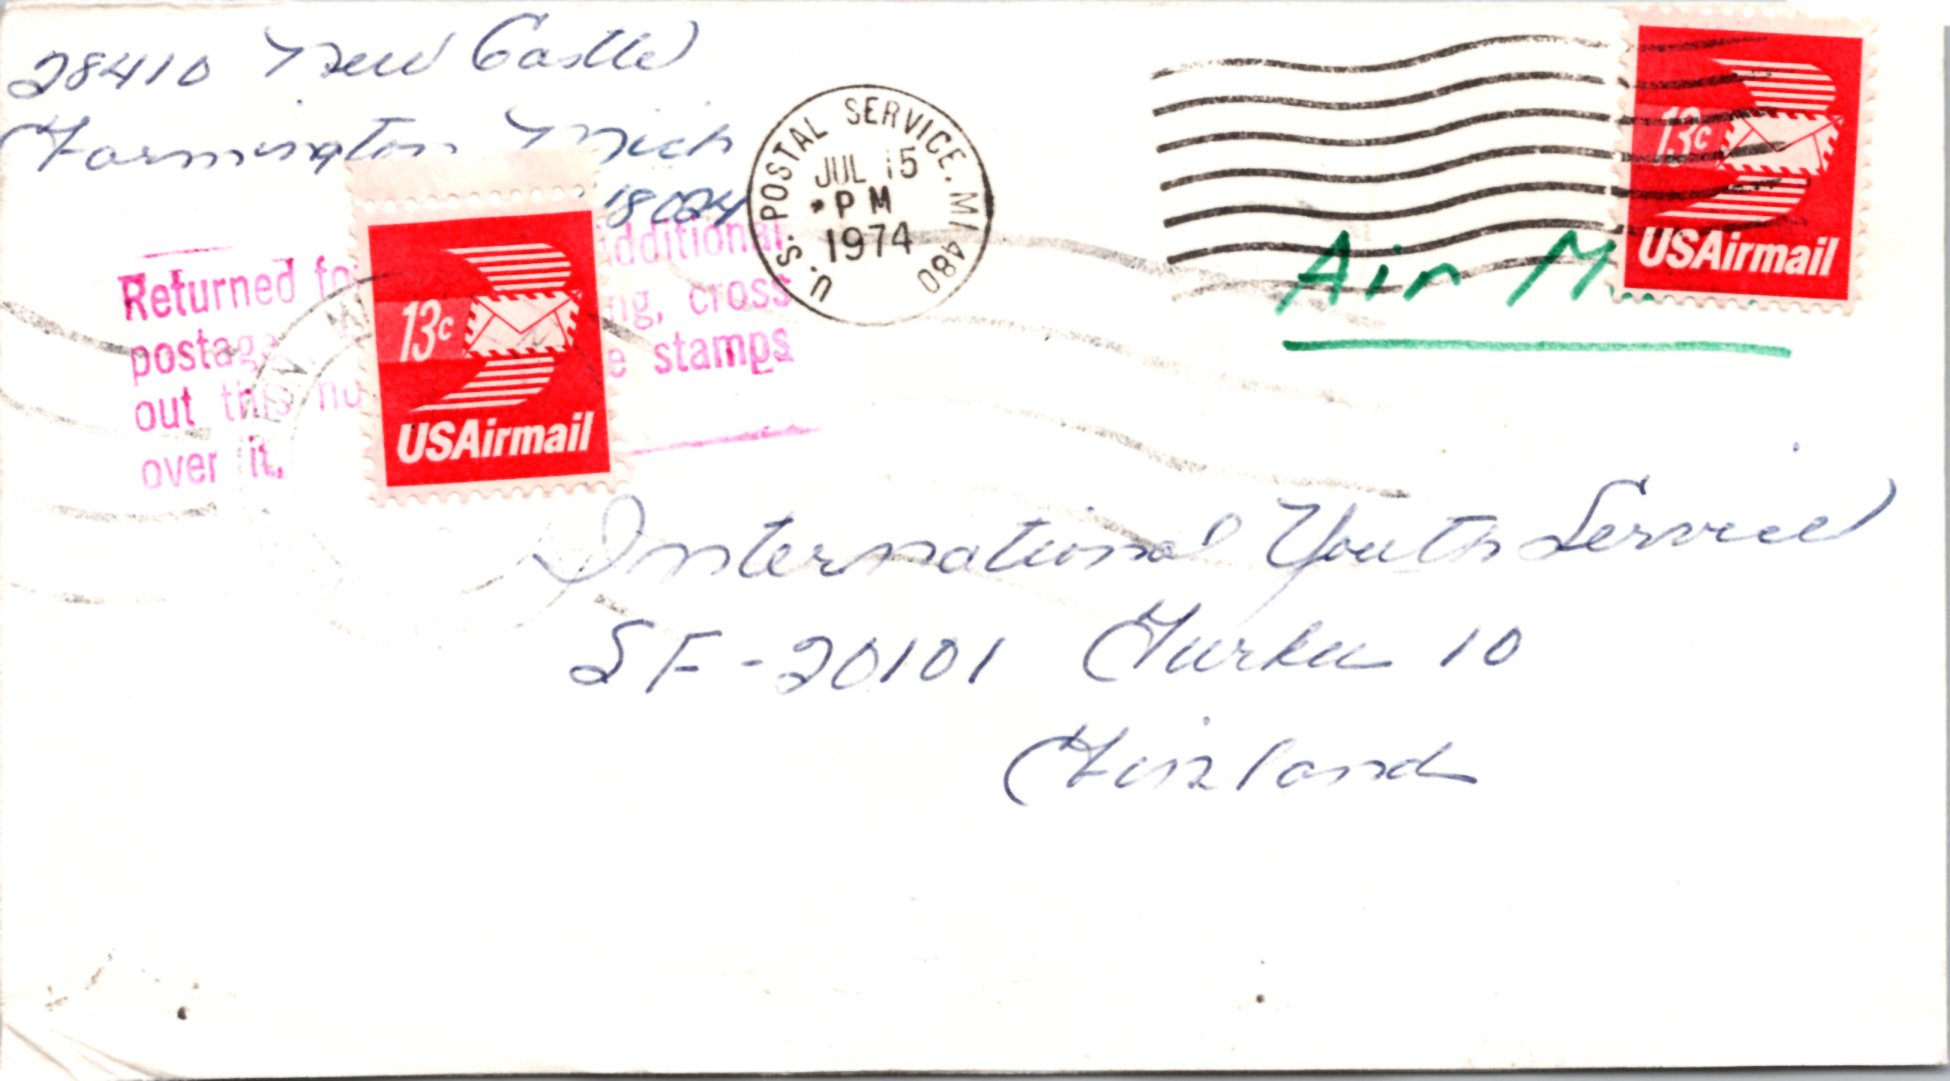 28410 New Castle
Farmington Mich
18024
U.S. POSTAL SERVICE, MI 480
JUL 15
PM
1974
Air M
13c
USAirmail
Returned for additional
postage ng, cross
out this no e stamps
over it.
13c
USAirmail
International Youth Service
SF-20101 Turku 10
Finland